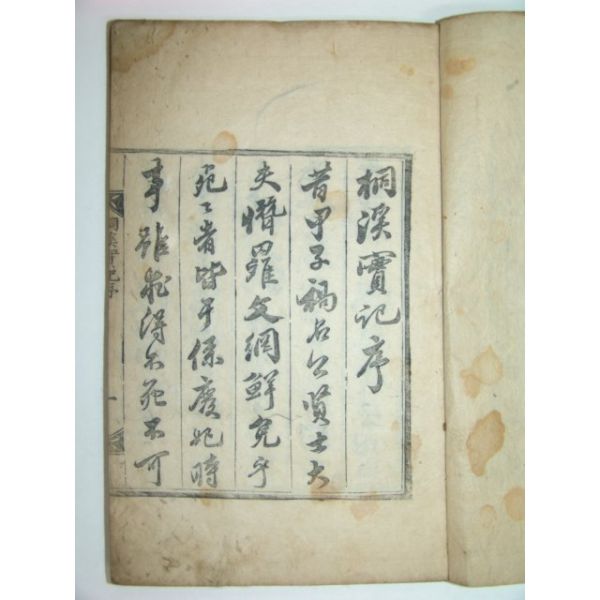 桐溪實記序
昔甲子禍名公賢士大
夫憯羅文網鮮免乎
死〻者皆干係廢妃時
事雖求得不死不可
桐溪實記序
一